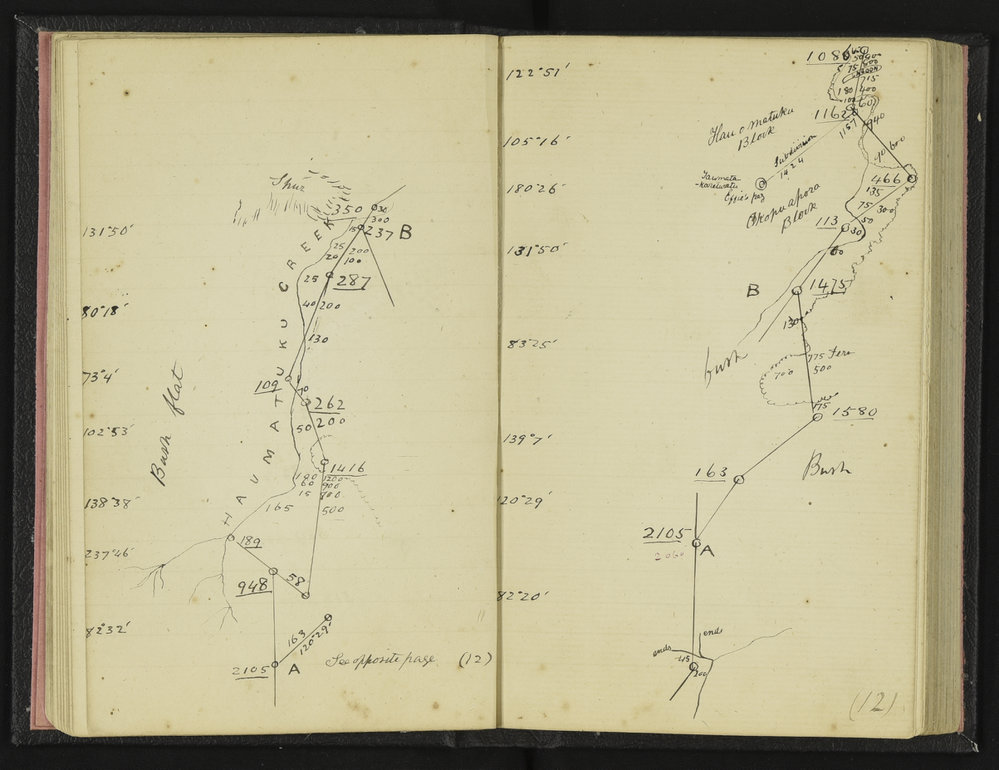 350
30
300
15
237 B
25
20
200
100
25
287
40
200
130
131°50'
80°18'
73°4'
102°53'
138°38'
237°46'
82°32'
Bush flat
HAUMATUKU CREEK
109
262
50
200
1416
180
60
15
1200
900
700
165
500
189
948
58
163
120°29'
2105
A
See opposite page (12)
122°51'
105°16'
180°26'
131°50'
83°25'
139°7'
120°29'
82°20'
1080
180
400
1162
60
1157
Hau o matuku
Block
Subdivision
1424
Block
466
135
75
50
300
113
30
60
B
1475
130
bush
775 Fern
700
500
175
1580
Bush
163
2105
2060
A
ends
ends
45
200
(12)